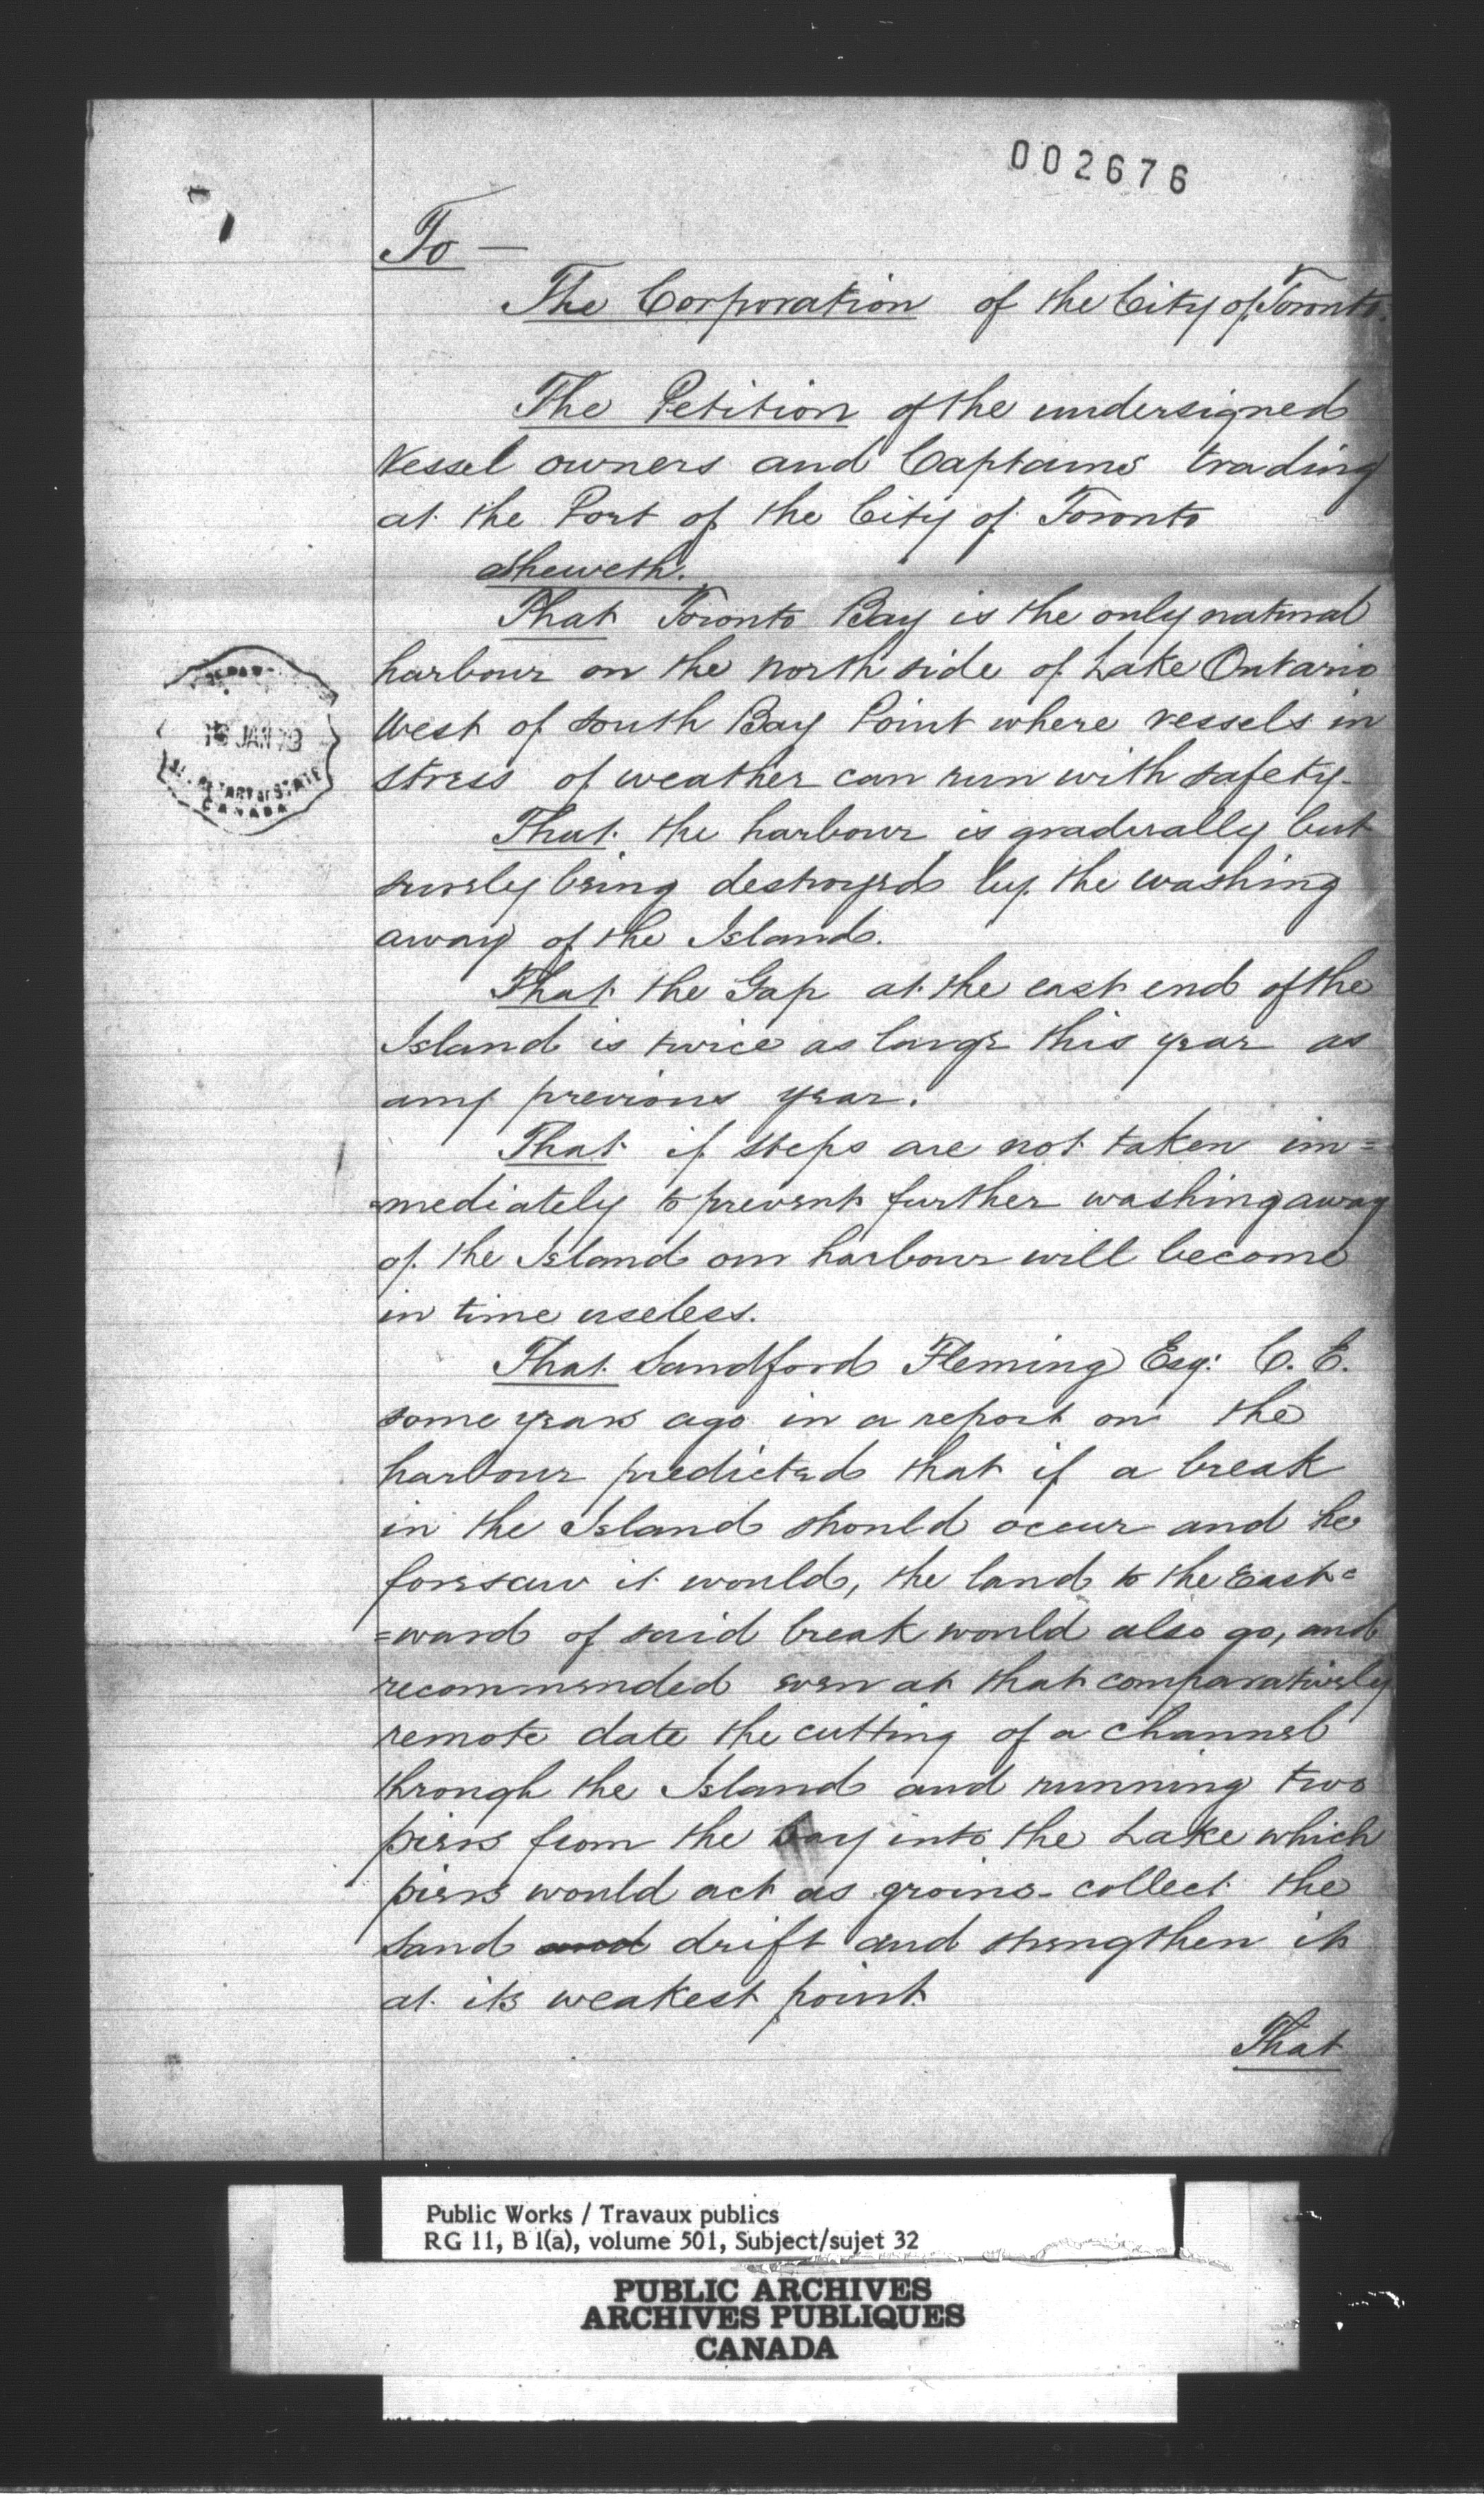 002676
To —
The Corporation of the City of Toronto.
The Petition of the undersigned
Vessel owners and Captains trading
at the Port of the City of Toronto
Sheweth.
That Toronto Bay is the only natural
harbour on the north side of Lake Ontario
West of South Bay Point where vessels in
stress of weather can run with safety.
That the harbour is gradually but
surely being destroyed by the washing
away of the Island.
That the Gap at the east end of the
Island is twice as large this year as
any previous year.
That if steps are not taken im=
=mediately to prevent further washing away
of the Island our harbour will become
in time useless.
That Sandford Fleming Esq: C. E.
some years ago in a report on the
harbour predicted that if a break
in the Island should occur and he
foresaw it would, the land to the East=
=ward of said break would also go, and
recommended even at that comparatively
remote date the cutting of a channel
through the Island and running two
piers from the bay into the Lake which
piers would act as groins - collect the
sand and drift and strengthen it
at its weakest point.
That
JAN
SECRETARY OF STATE
CANADA
Public Works / Travaux publics
RG 11, B 1(a), volume 501, Subject/sujet 32
PUBLIC ARCHIVES
ARCHIVES PUBLIQUES
CANADA